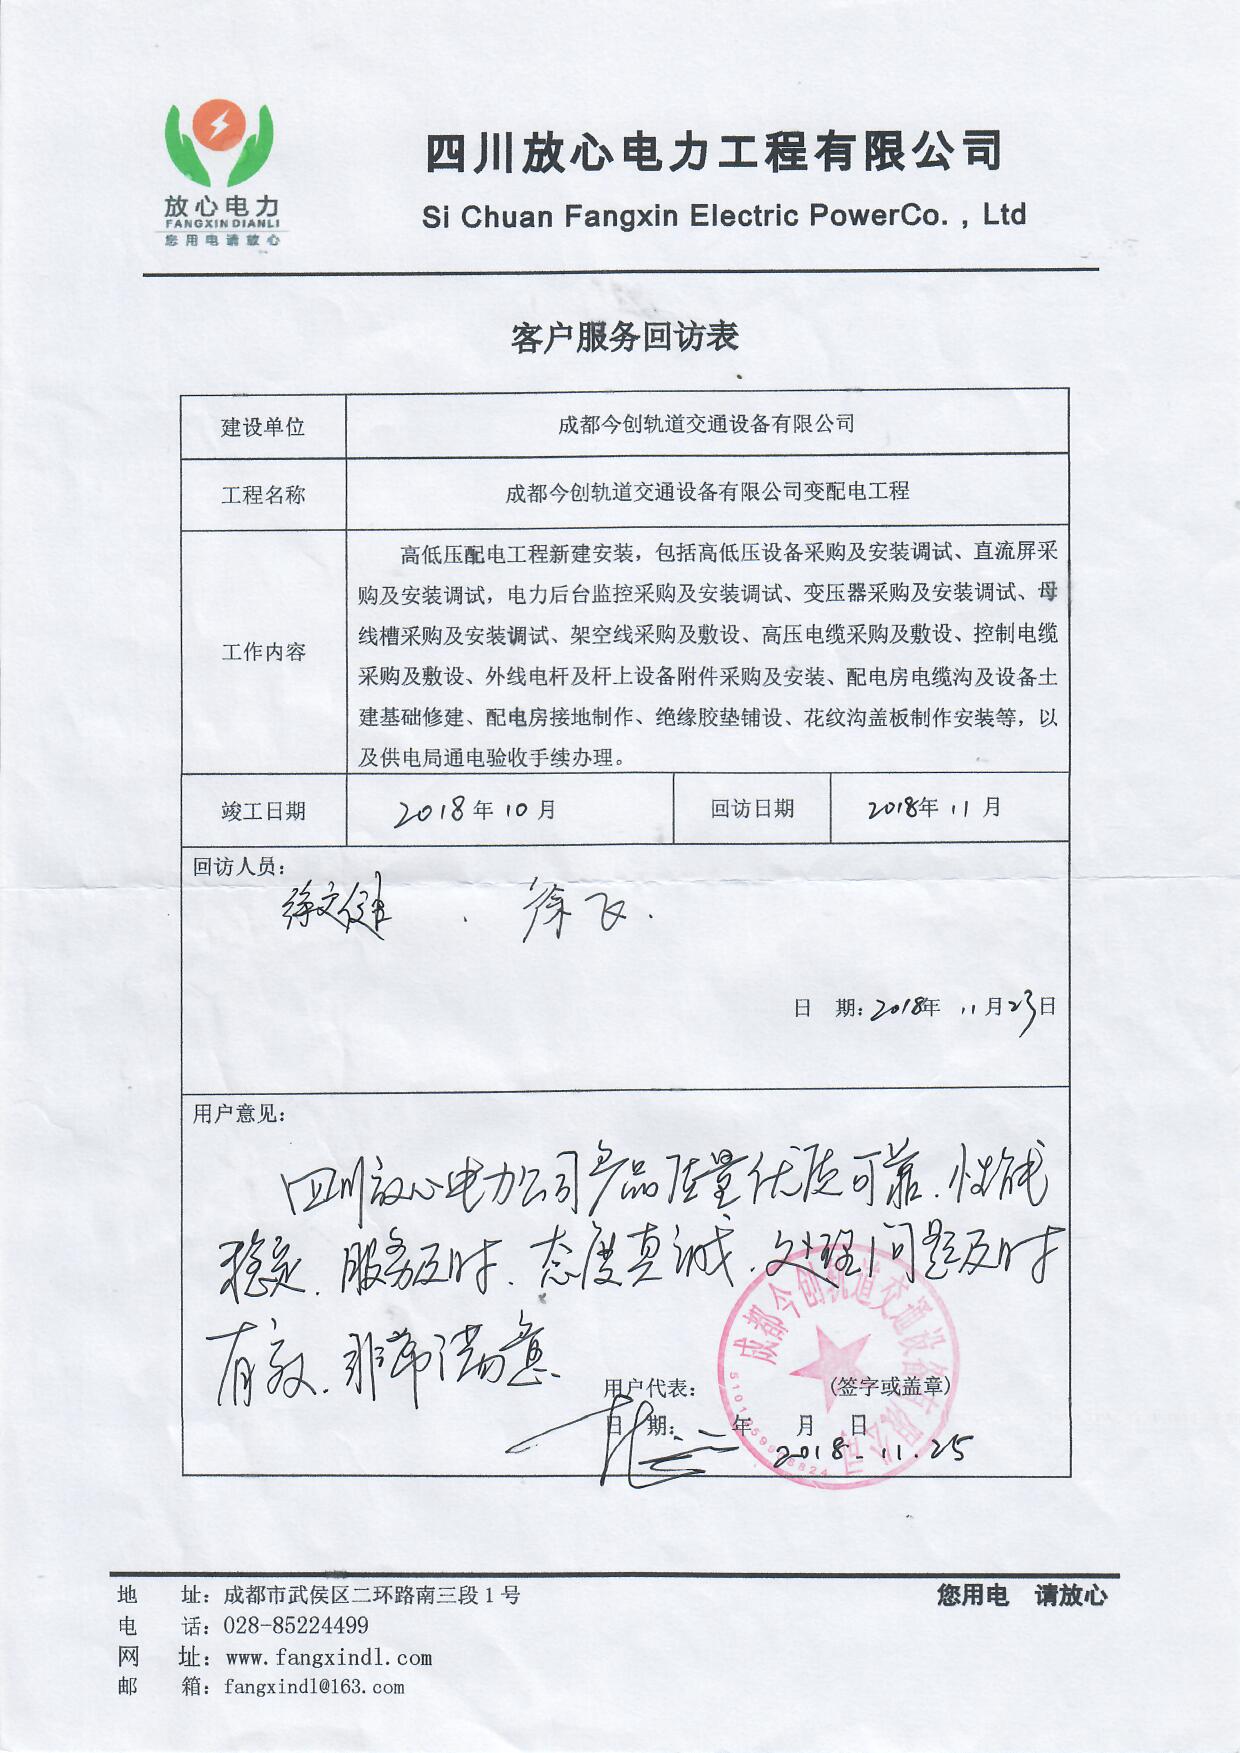 放心电力
FANGXIN DIANLI
您用电请放心
四川放心电力工程有限公司
Si Chuan Fangxin Electric PowerCo. , Ltd
客户服务回访表
建设单位
成都今创轨道交通设备有限公司
工程名称
成都今创轨道交通设备有限公司变配电工程
工作内容
高低压配电工程新建安装，包括高低压设备采购及安装调试、直流屏采
购及安装调试，电力后台监控采购及安装调试、变压器采购及安装调试、母
线槽采购及安装调试、架空线采购及敷设、高压电缆采购及敷设、控制电缆
采购及敷设、外线电杆及杆上设备附件采购及安装、配电房电缆沟及设备土
建基础修建、配电房接地制作、绝缘胶垫铺设、花纹沟盖板制作安装等，以
及供电局通电验收手续办理。
竣工日期
2018年10月
回访日期
2018年11月
回访人员：
徐文健 、徐飞.
日 期：2018年 11月23日
用户意见：
四川放心电力公司产品质量优质可靠、性能
稳定、服务及时、态度真诚、处理问题及时
有效、非常满意、
用户代表： (签字或盖章)
日 期： 年 月 日
2018.11.25
成都今创轨道交通设备有限公司
地 址：成都市武侯区二环路南三段1号
您用电 请放心
电 话：028-85224499
网 址：www.fangxindl.com
邮 箱：fangxindl@163.com